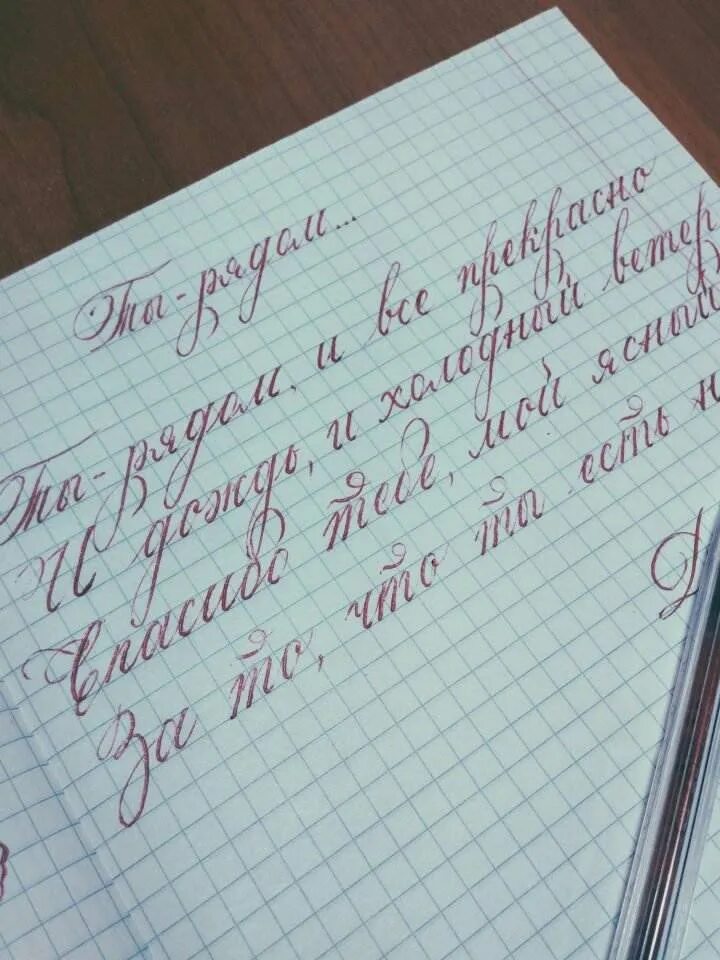 Ты-рядом...
Ты-рядом, и все прекрасно
И дождь, и холодный ветер
Спасибо тебе, мой ясный
За то, что ты есть н